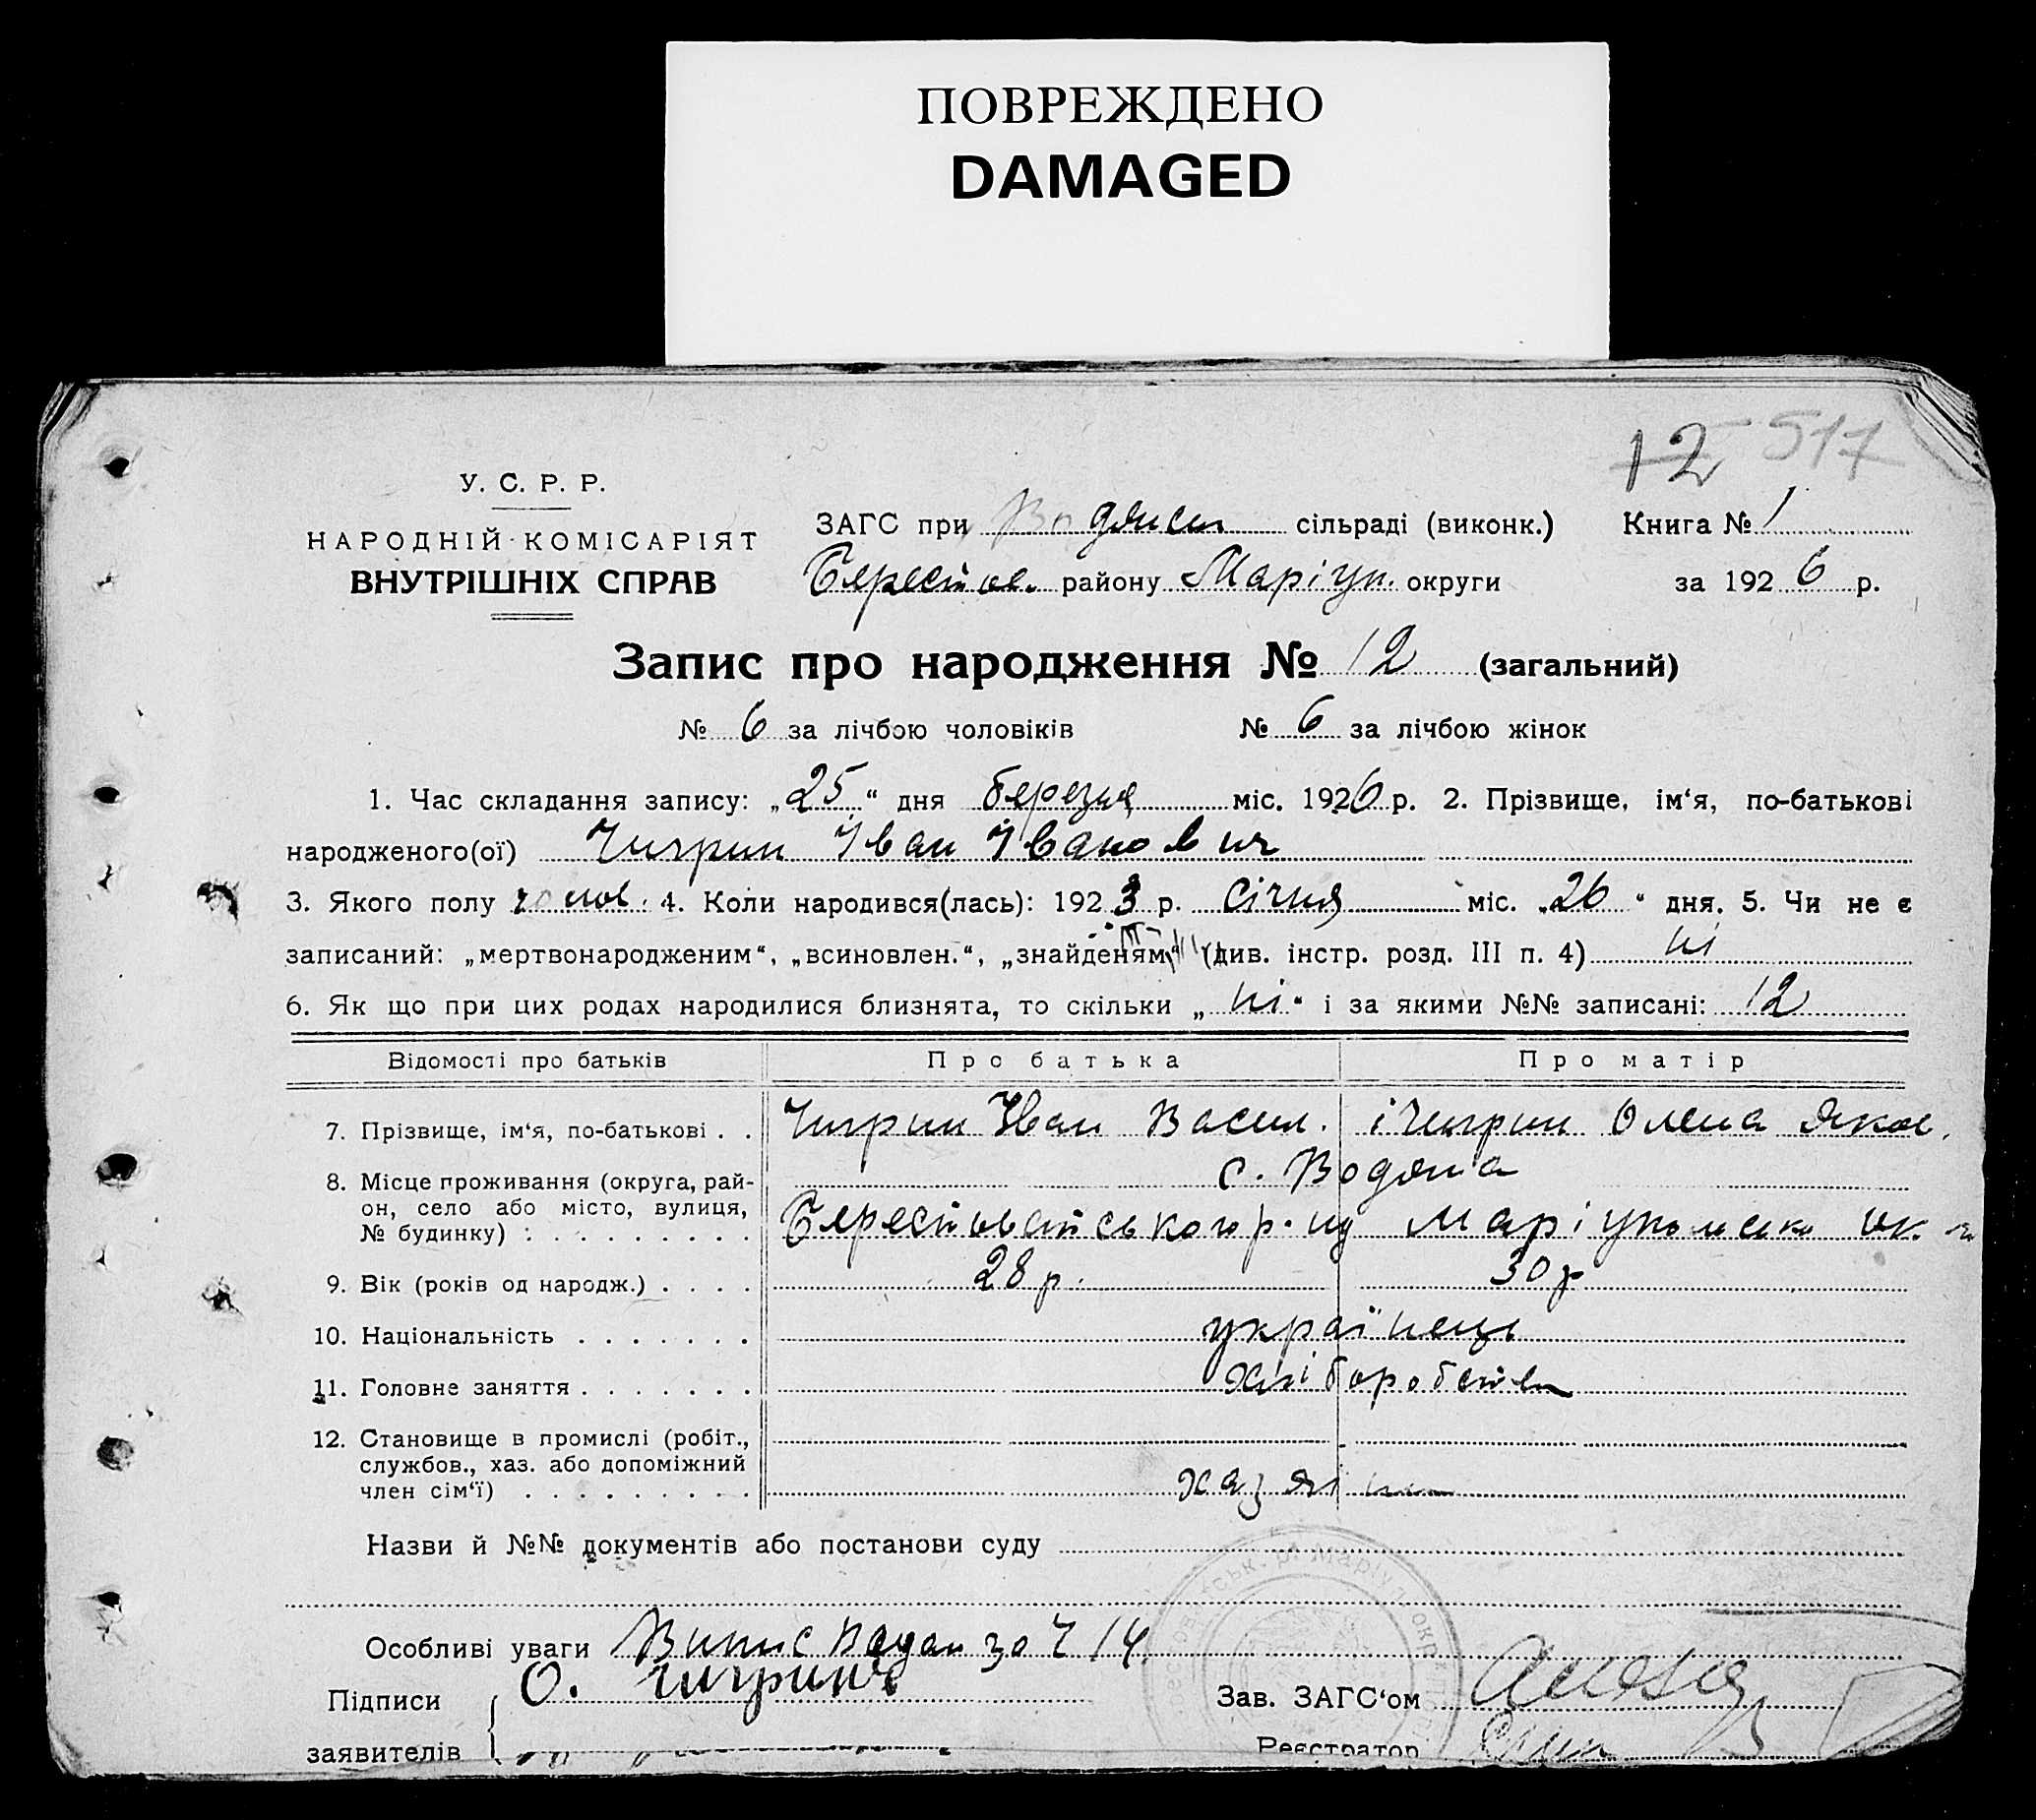 ПОВРЕЖДЕНО
DAMAGED
12 517
У. С. Р. Р.
НАРОДНІЙ КОМІСАРІЯТ
ВНУТРІШНІХ СПРАВ
ЗАГС при Водянсь сільраді (виконк.) Книга № 1
Берестов. району Маріуп. округи за 1926 р.
Запис про народження № 12 (загальний)
№ 6 за лічбою чоловіків № 6 за лічбою жінок
1. Час складання запису: „25“ дня березня міс. 1926 р. 2. Прізвище, ім‘я, по-батькові
народженого(ої) Чигрин Іван Іванович
3. Якого полу чолов. 4. Коли народився(лась): 1923 р. Січня міс. „26“ дня. 5. Чи не є
записаний: „мертвонародженим“, „всиновлен.“, „знайденям“ (див. інстр. розд. III п. 4) ні
6. Як що при цих родах народилися близнята, то скільки „ні“ і за якими №№ записані: 12
Відомості про батьків Про батька Про матір
7. Прізвище, ім‘я, по-батькові . . Чигрин Іван Васил. і Чигрин Олена Яков.
8. Місце проживання (округа, рай-
он, село або місто, вулиця,
№ будинку) : . . . . . . . . .
с. Водяна
Берестоватського р-ну Маріупольсько ок.
9. Вік (років од народж.) . . . . 28 р. 30 р
10. Національність . . . . . . . українець
11. Головне заняття . . . . . . . хліборобств
12. Становище в промислі (робіт.,
службов., хаз. або допоміжний
член сім‘ї) . . . . . . . . . хазяїн
Назви й №№ документів або постанови суду
Особливі уваги Випис Видан за Ч 14.
Підписи
заявителів
О. Чигрина
Зав. ЗАГС‘ом
Реєстратор
ськ. р. Маріуп. окр